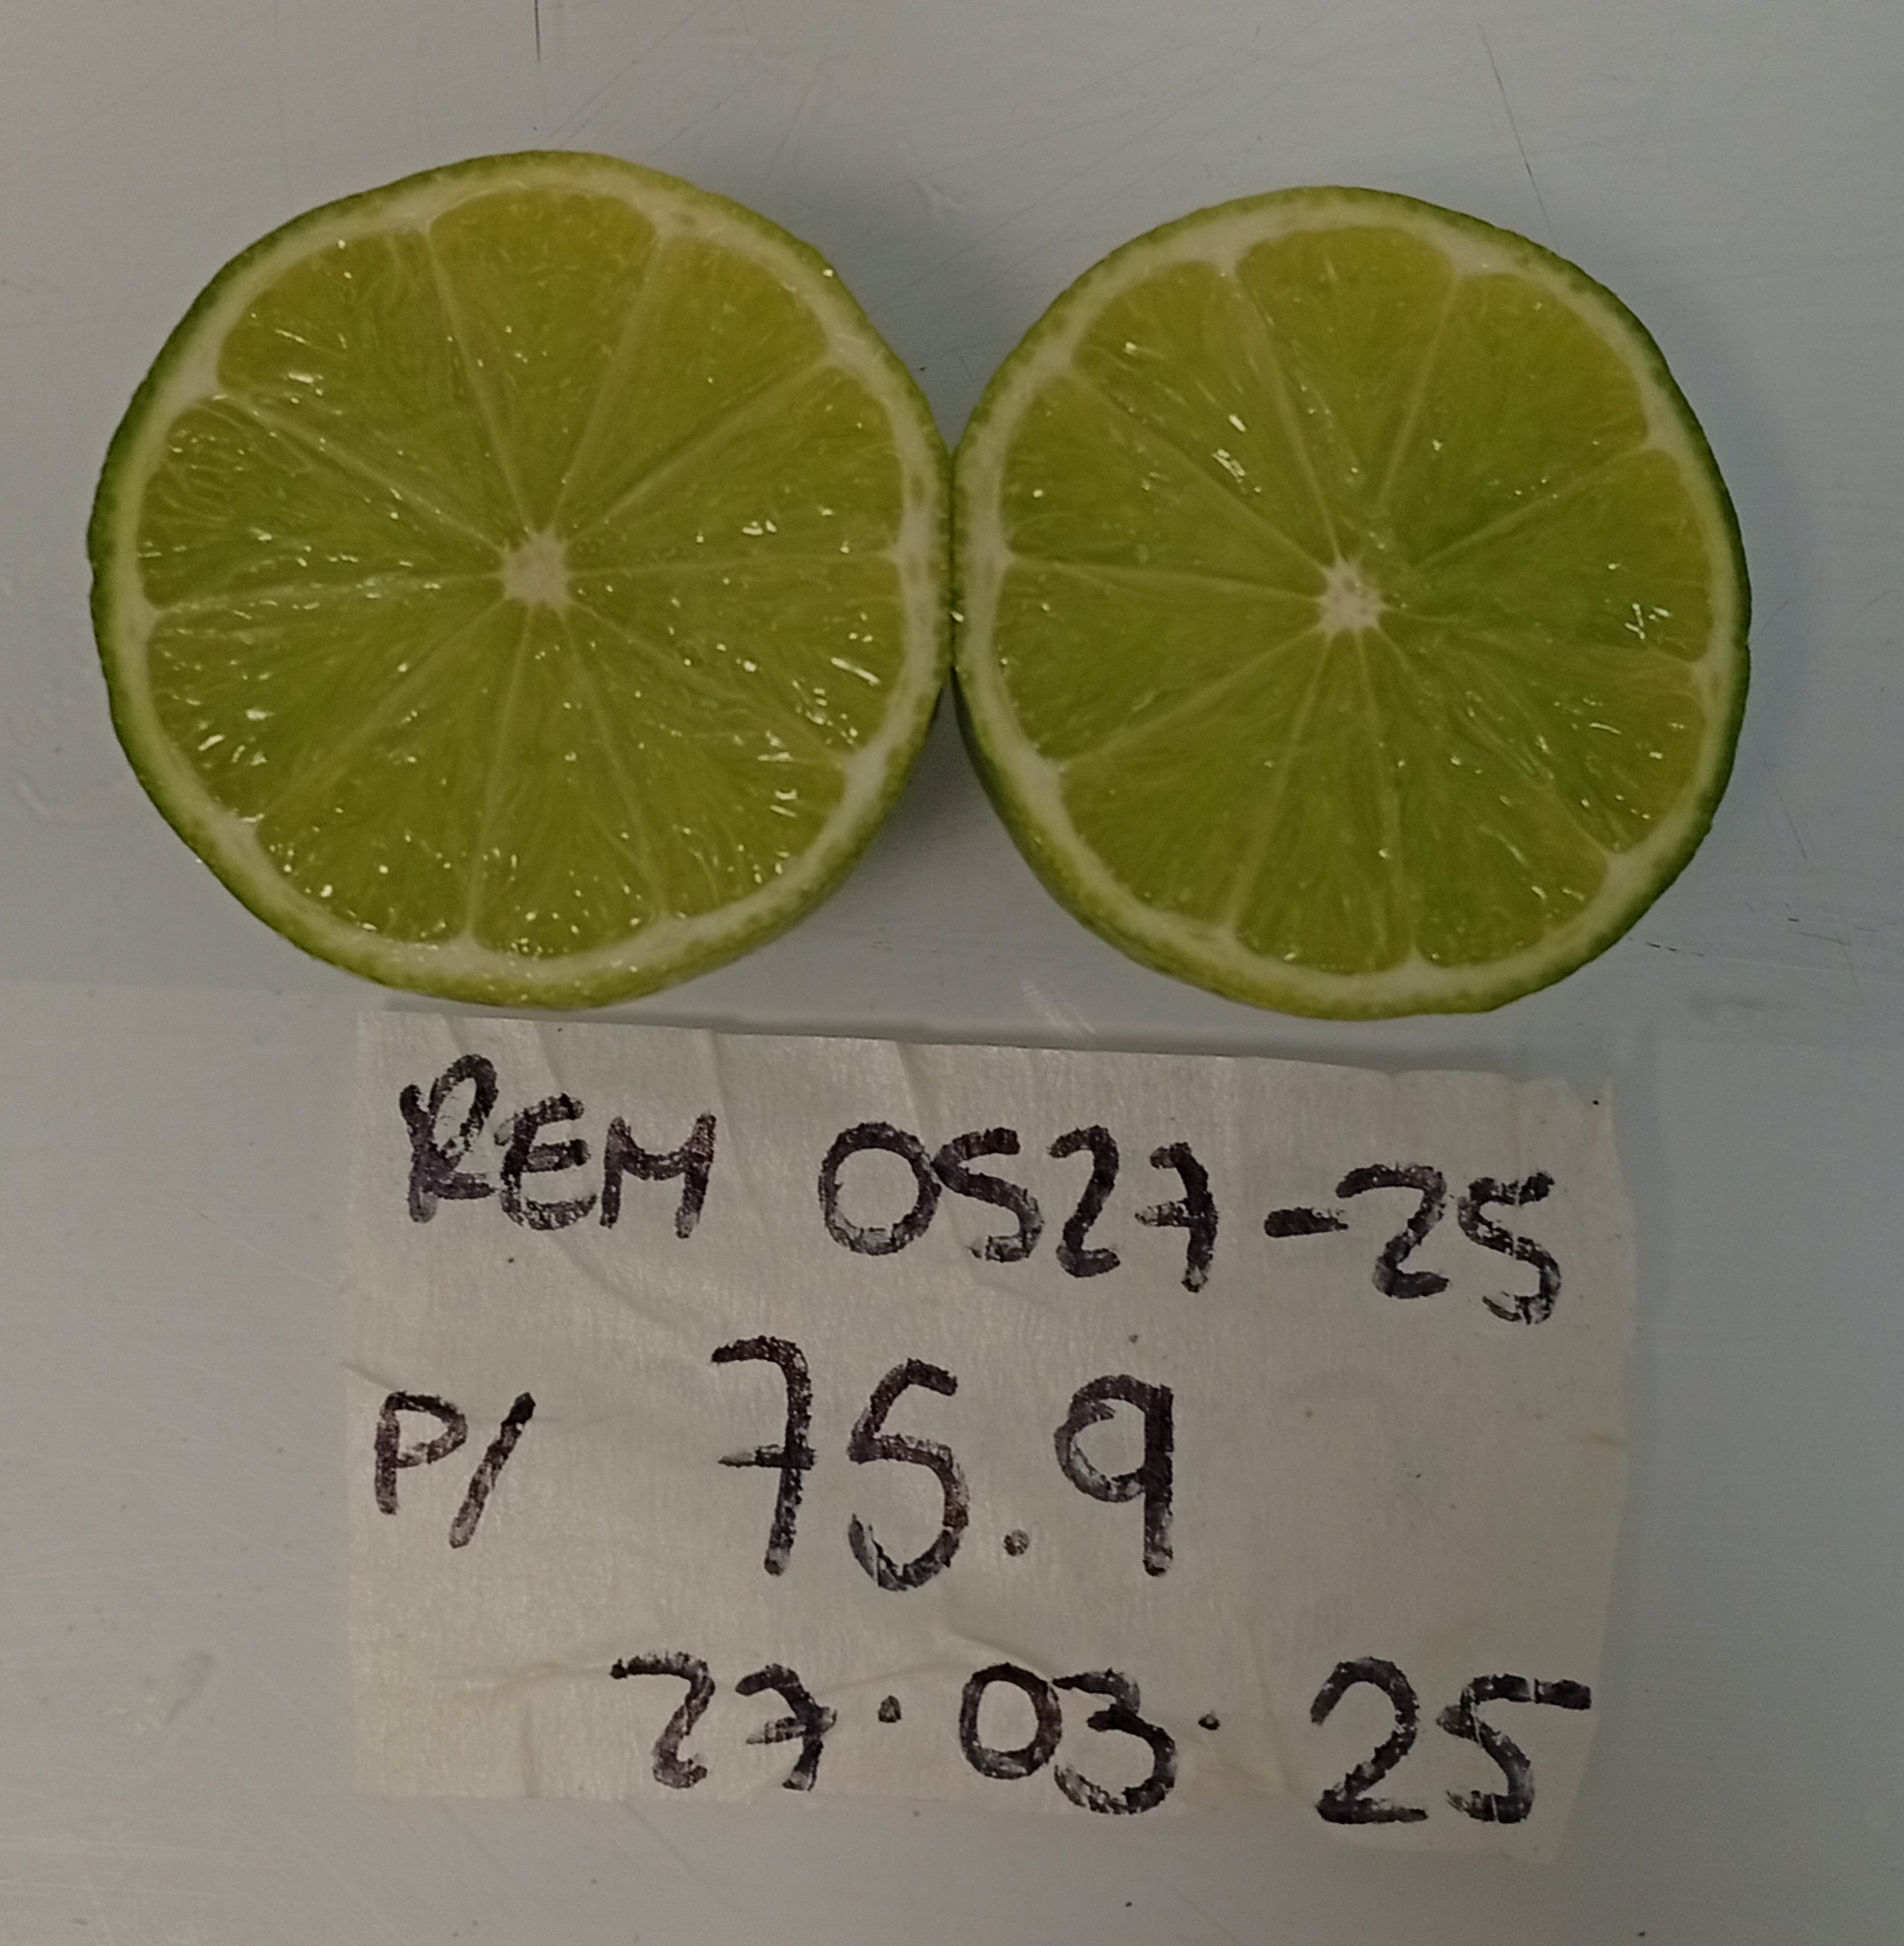 REM 0527-25
P/ 75.9
27.03.25